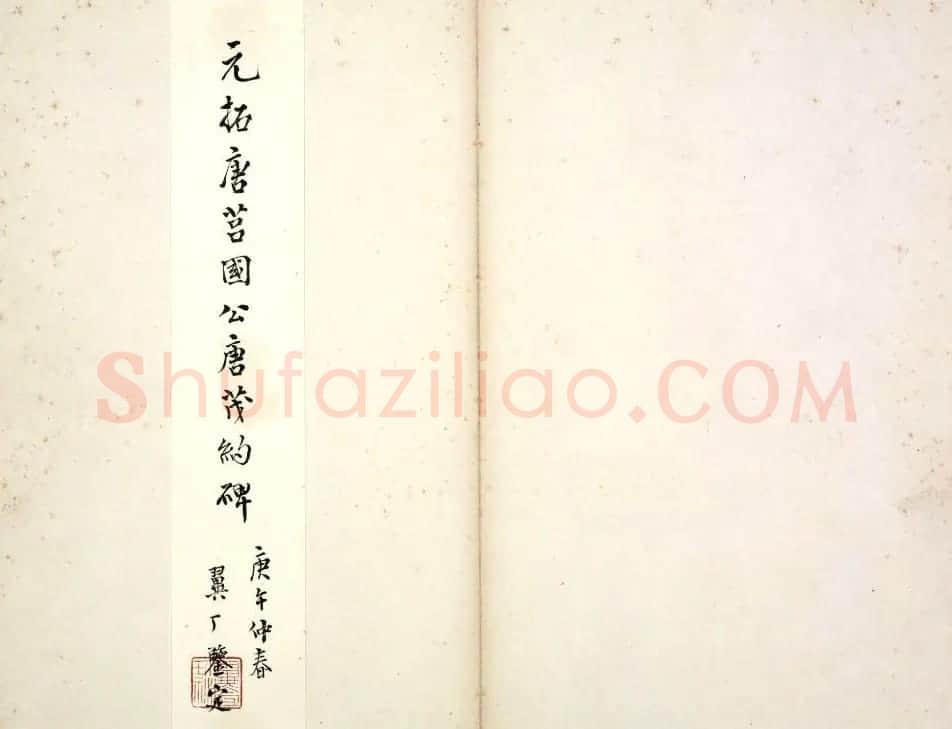 元拓唐莒國公唐茂約碑
庚午仲春
翼丁鑒定
Shufaziliao.COM